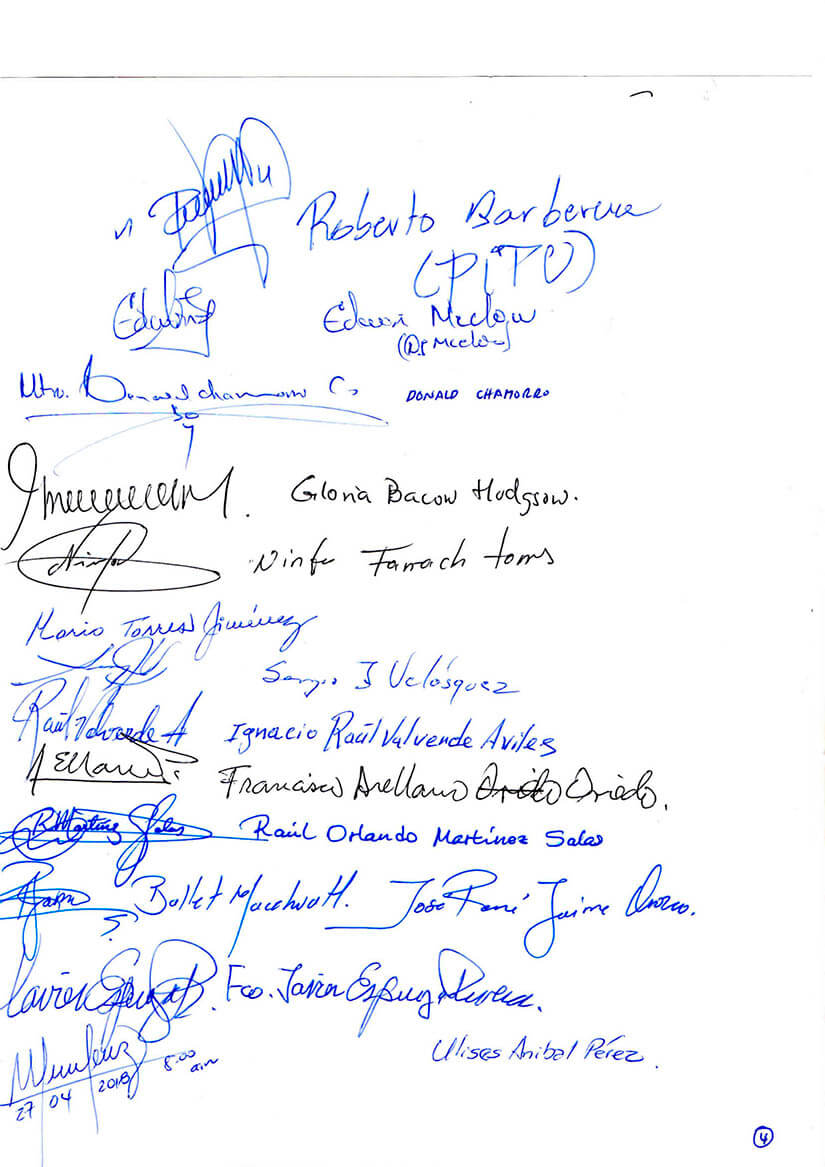 Roberto Barberena
(PITO)
Edwin
(
Mtro. Donald chamorro C. DONALD CHAMORRO
Gloria Bacon Hodgson.
Ninfa Ninfa Farrach
Mario Torres Jiménez
Sergio J Velásquez
Raúl Valverde A Ignacio Raúl Valverde Aviles
Arellano Francisco Arellano Oviedo Oviedo.
R. Martínez Salas Raúl Orlando Martínez Salas
Ballet José René Jaime Orozco.
Javier Espinoza R. Fco. Javier Espinoza Rivera.
Ulises Anibal Pérez.
8:00 a.m
27 04 2018
4